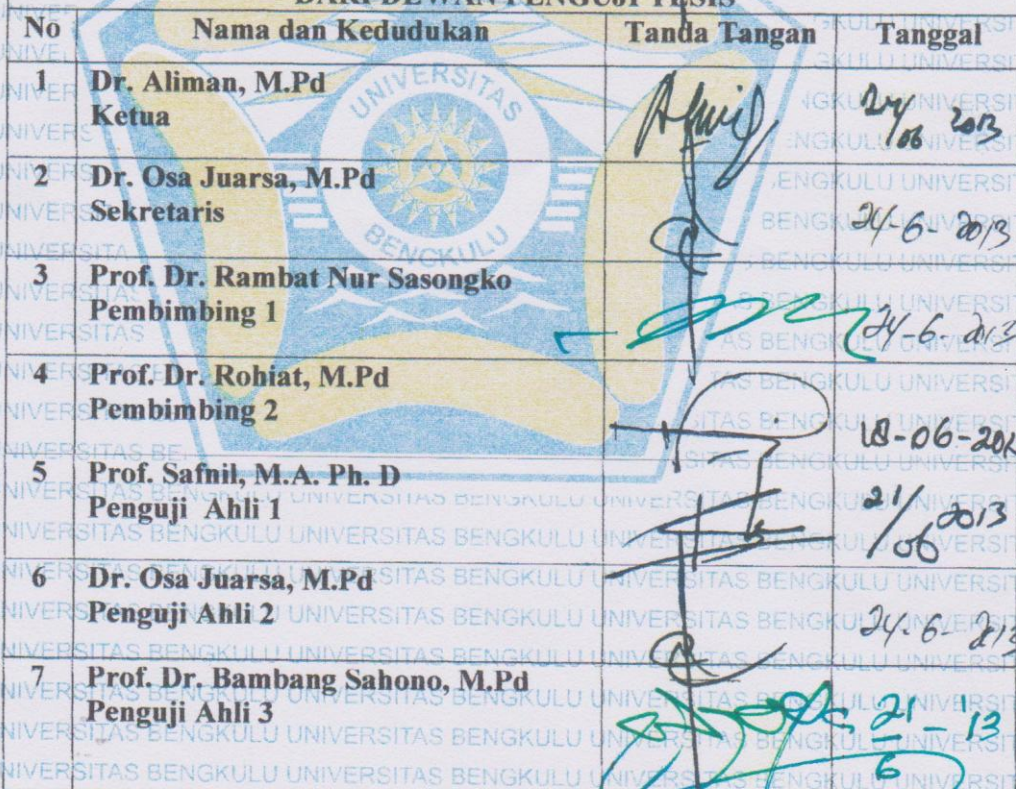 DARI DEWAN PENGUJI TESIS
No Nama dan Kedudukan Tanda Tangan Tanggal
1 Dr. Aliman, M.Pd
Ketua
06 2013
2 Dr. Osa Juarsa, M.Pd
Sekretaris
24-6-2013
3 Prof. Dr. Rambat Nur Sasongko
Pembimbing 1
24-6-2013
4 Prof. Dr. Rohiat, M.Pd
Pembimbing 2
18-06-201
5 Prof. Safnil, M.A. Ph. D
Penguji Ahli 1
21/06 2013
6 Dr. Osa Juarsa, M.Pd
Penguji Ahli 2
24-6-2013
7 Prof. Dr. Bambang Sahono, M.Pd
Penguji Ahli 3
21/6 - '13
UNIVERSITAS
BENGKULU